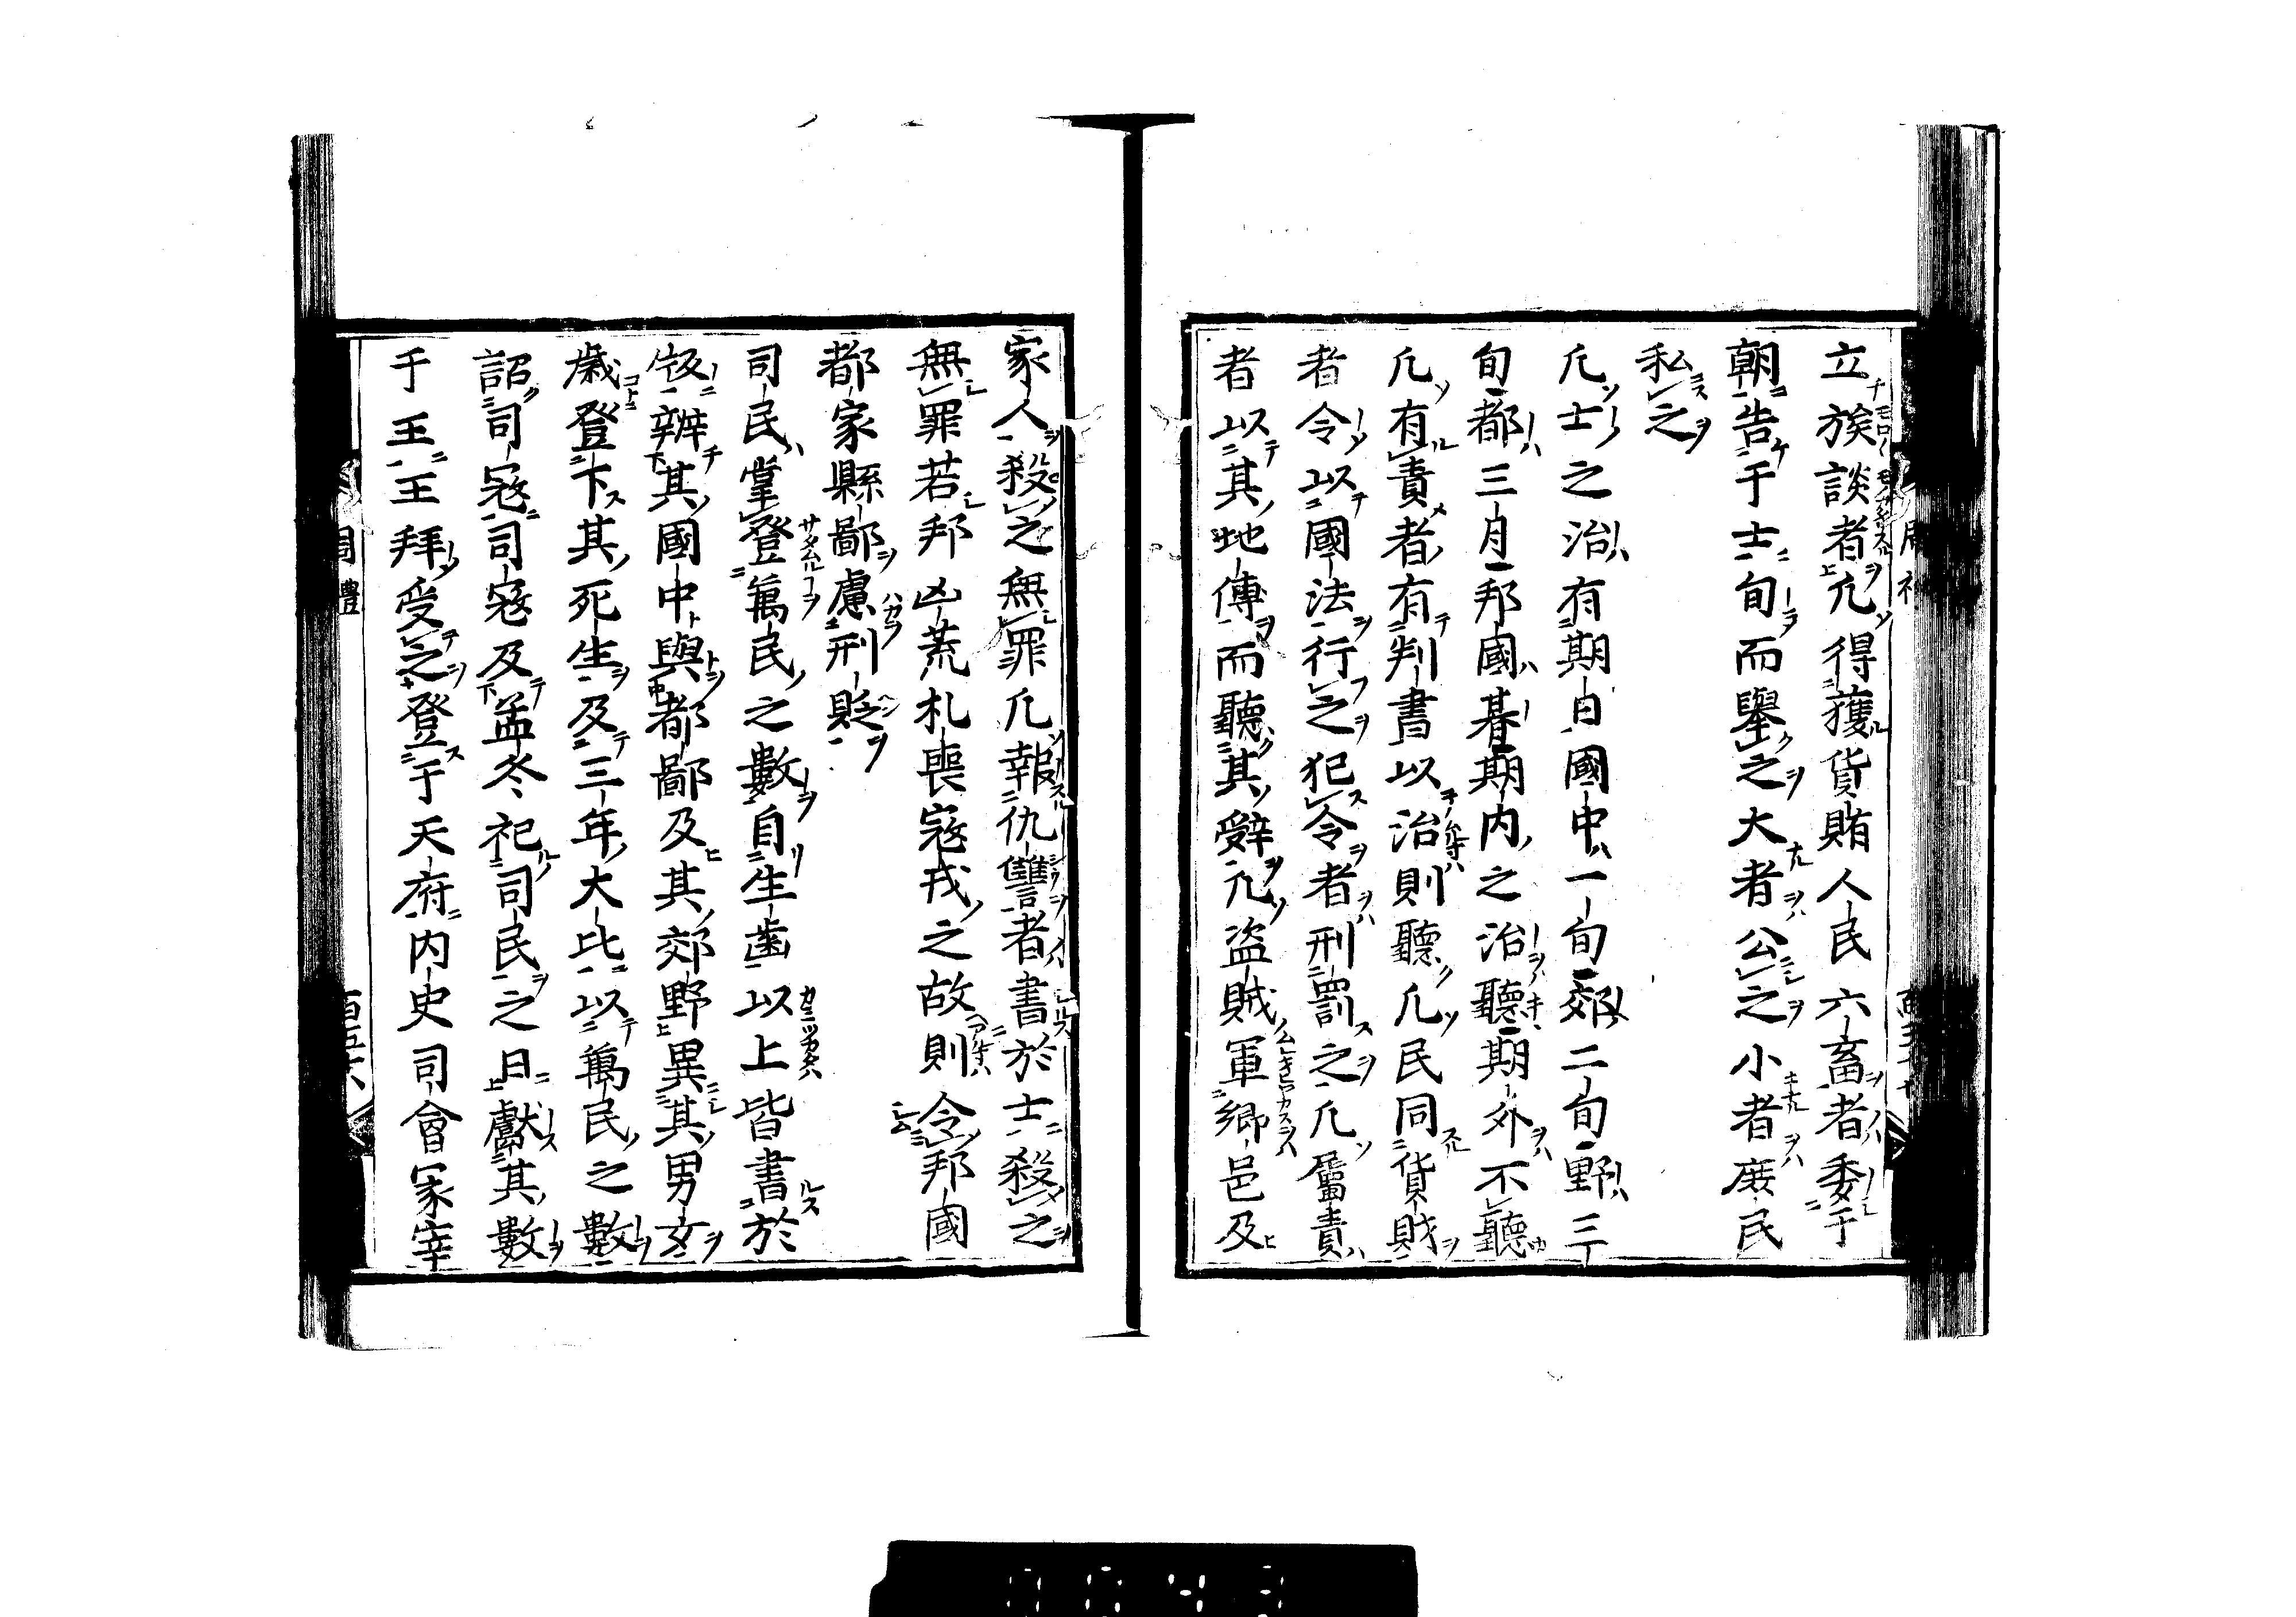 立族談者凢得獲貨賄人民六畜者委于
朝告于士旬而擧之大者公之小者庻民
私之
凢士之治有期日國中一旬郊二旬野三
旬都三月邦國朞期内之治聽期外不聽
凢有責者有判書以治則聽凢民同貨財
者令以國法行之犯令者刑罰之凢屬責
者以其地傳而聽其辭凢盗賊軍鄉邑及
家人殺之無罪凢報仇讐者書於士殺之
無罪若邦凶荒札喪宼戎之故則令邦國
都家縣鄙慮刑貶
司民掌登萬民之數自生齒以上皆書於
版辨其國中與都鄙及其郊野異其男女
歳登下其死生及三年大比以萬民之數
詔司宼司宼及孟冬祀司民之日獻其數
于王王拜受之登于天府内史司會冢宰
周禮